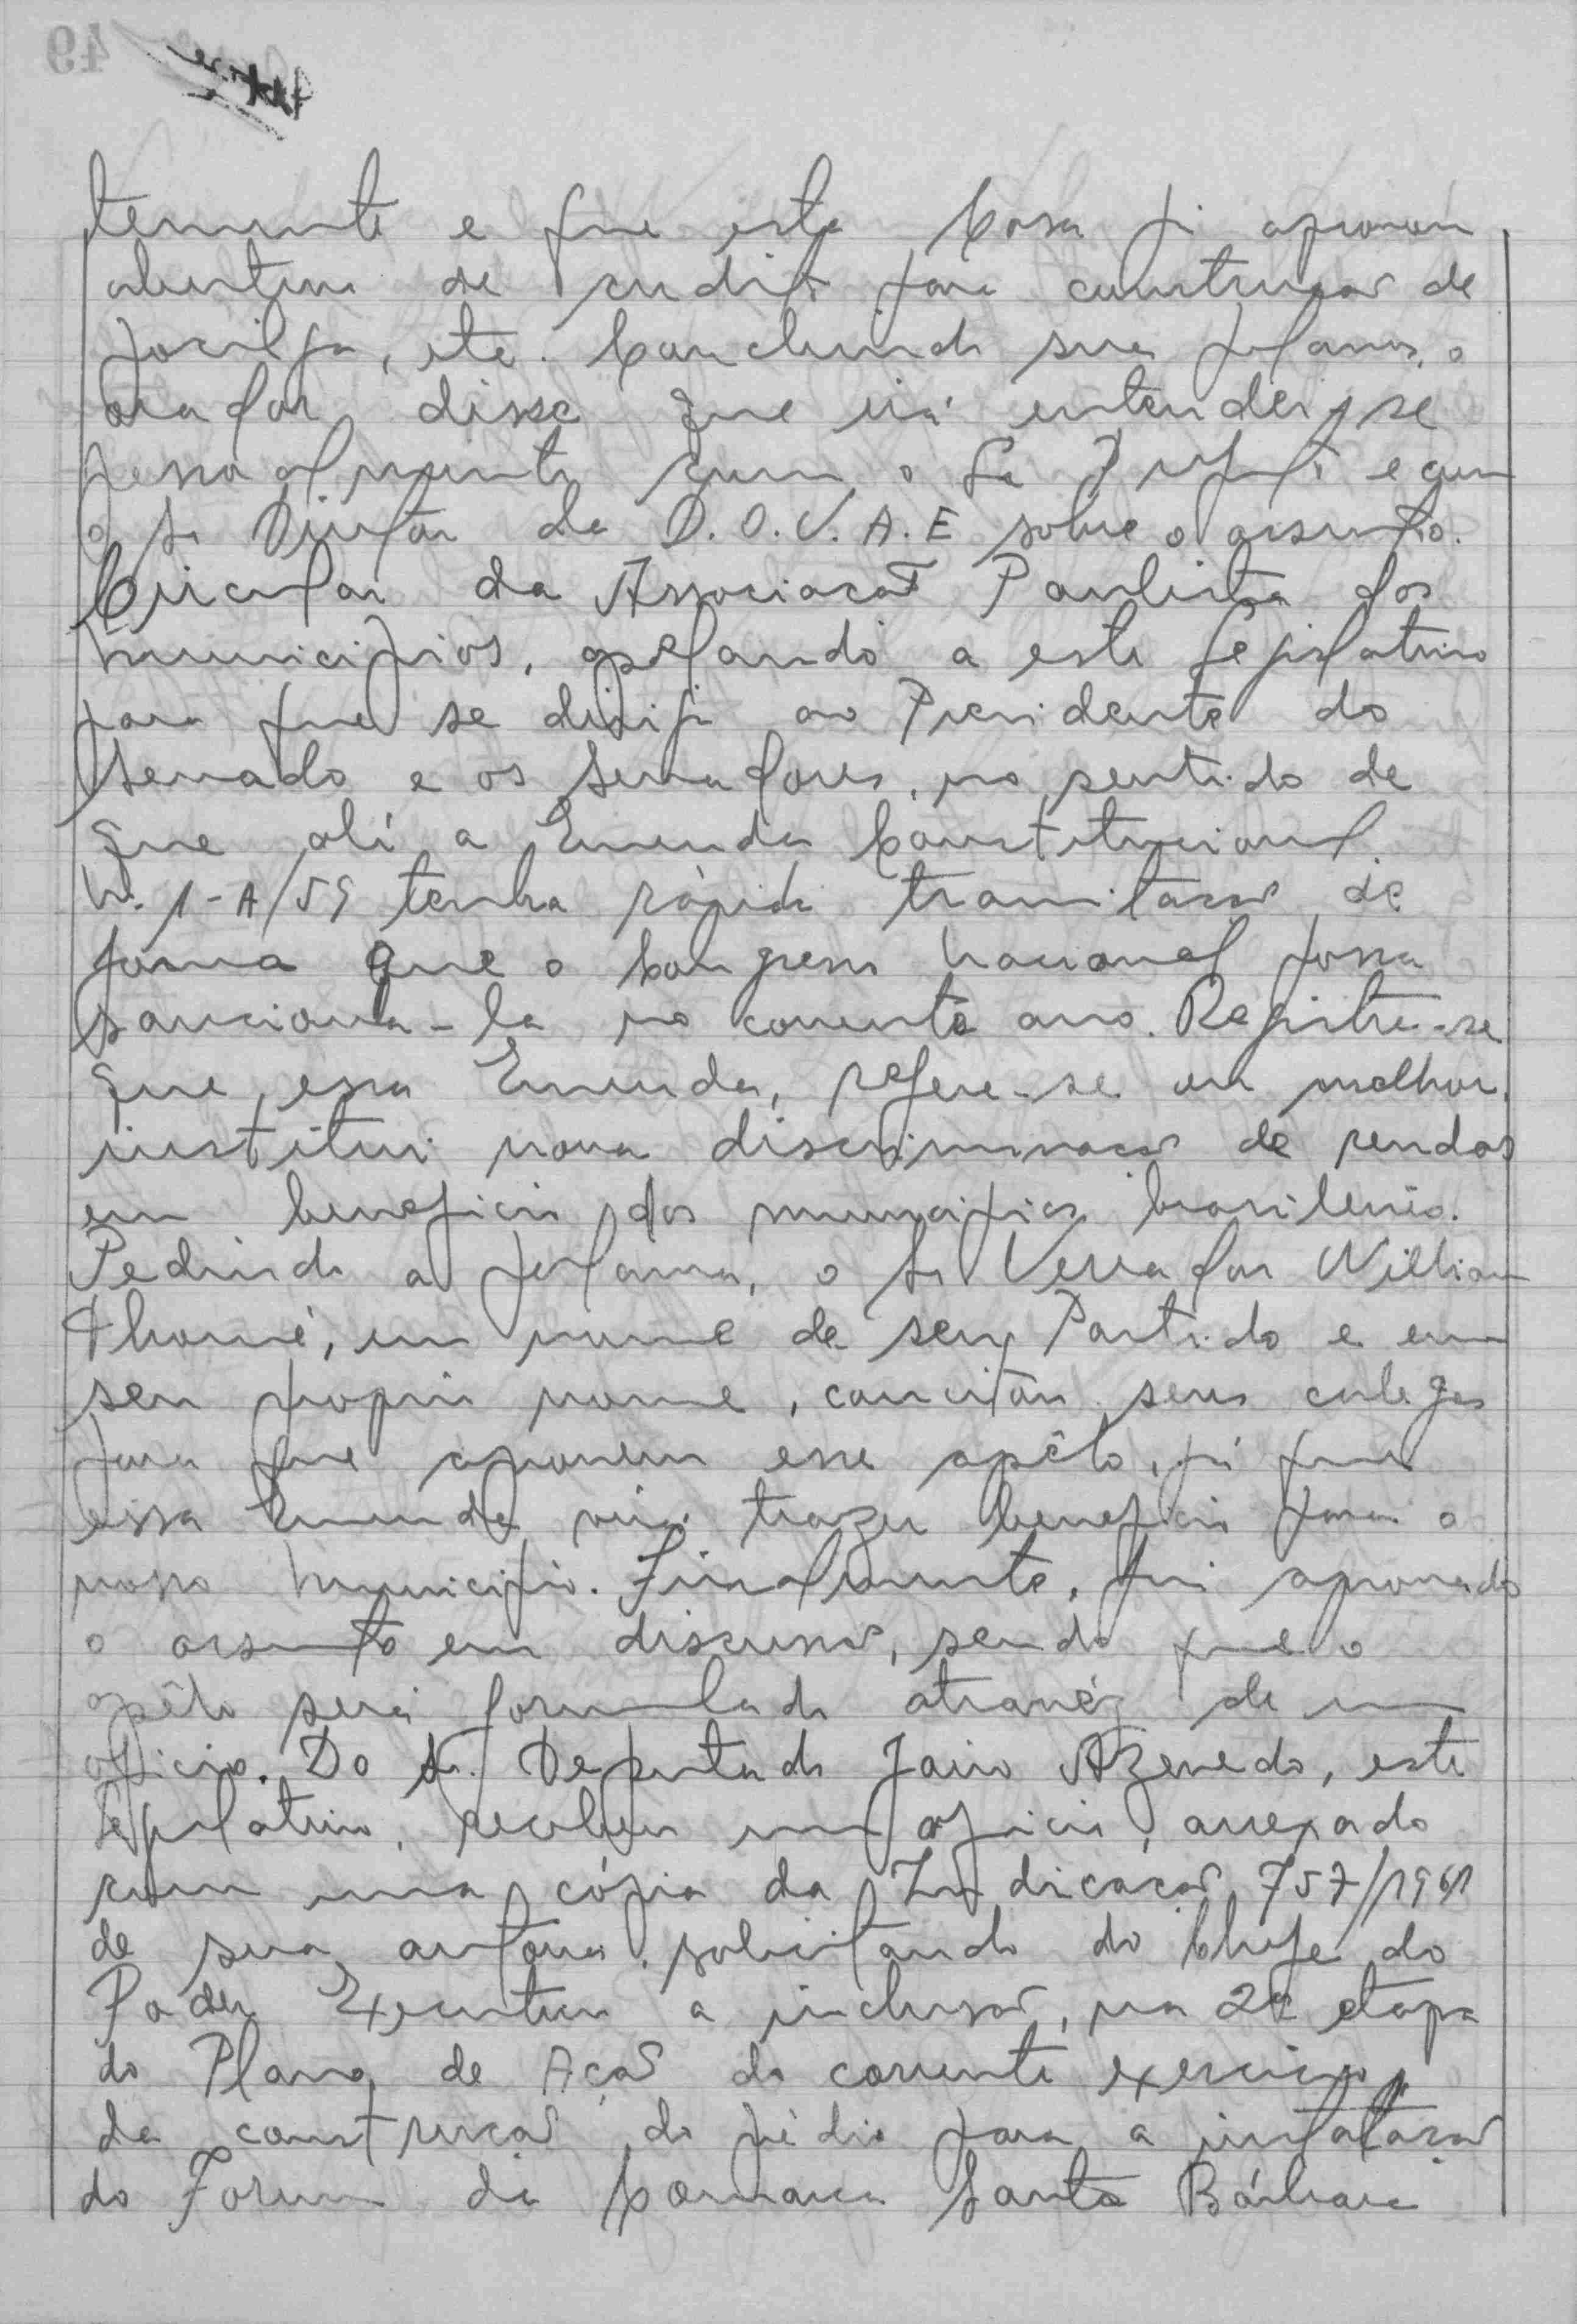 temente e que esta Casa já aprovou
abertura de credito para construção de
forilga, etc. Concluindo sua palavra, o
orador disse que irá entender-se
pessoalmente com o Sr Prefeito e com
o Sr Diretor do D.O.V.A.E sobre o assunto.
Circular da Associação Paulista dos
Municipios, apelando a este Legislativo
para que se dirija ao Presidente do
Senado e os Senadores, no sentido de
que ali a Emenda Constitucional
N. 1-A/59 tenha rápida tramitação de
forma que o Congresso Nacional possa
sanciona-la no corrente ano. Registre-se
que, essa Emenda, refere-se ou melhor,
institui nova discriminação de rendas
em beneficio dos municipios brasileiros.
Pedindo a palavra, o Sr Vereador Willian
Thomé, em nome de seu Partido e em
seu proprio nome, concitou seus colegas
para que aprovem esse apêlo, já que
essa Emenda virá trazer beneficio para o
nosso Municipio. Finalmente, foi aprovado
o assunto em discussão, sendo que o
apêlo será formulado atravéz de um
oficio. Do Sr. Deputado Jairo Azevedo, este
Legislativo, recebeu um oficio, anexado
com uma cópia da Indicação 757/1961
de sua autoria, solicitando do Chefe do
Poder Executivo a inclusão, na 2ª etapa
do Plano de Ação do corrente exercicio,
da construção do prédio para a instalação
do Forum da Comarca Santa Bárbara